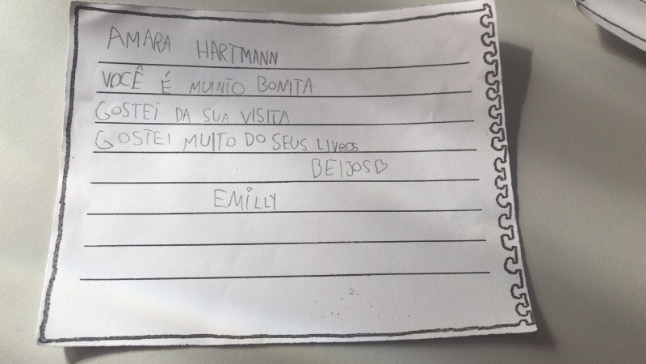 AMARA HARTMANN
VOCÊ É MUINTO BONITA
GOSTEI DA SUA VISITA
GOSTEI MUITO DO SEUS LIVROS
BEIJOS♡
EMILLY